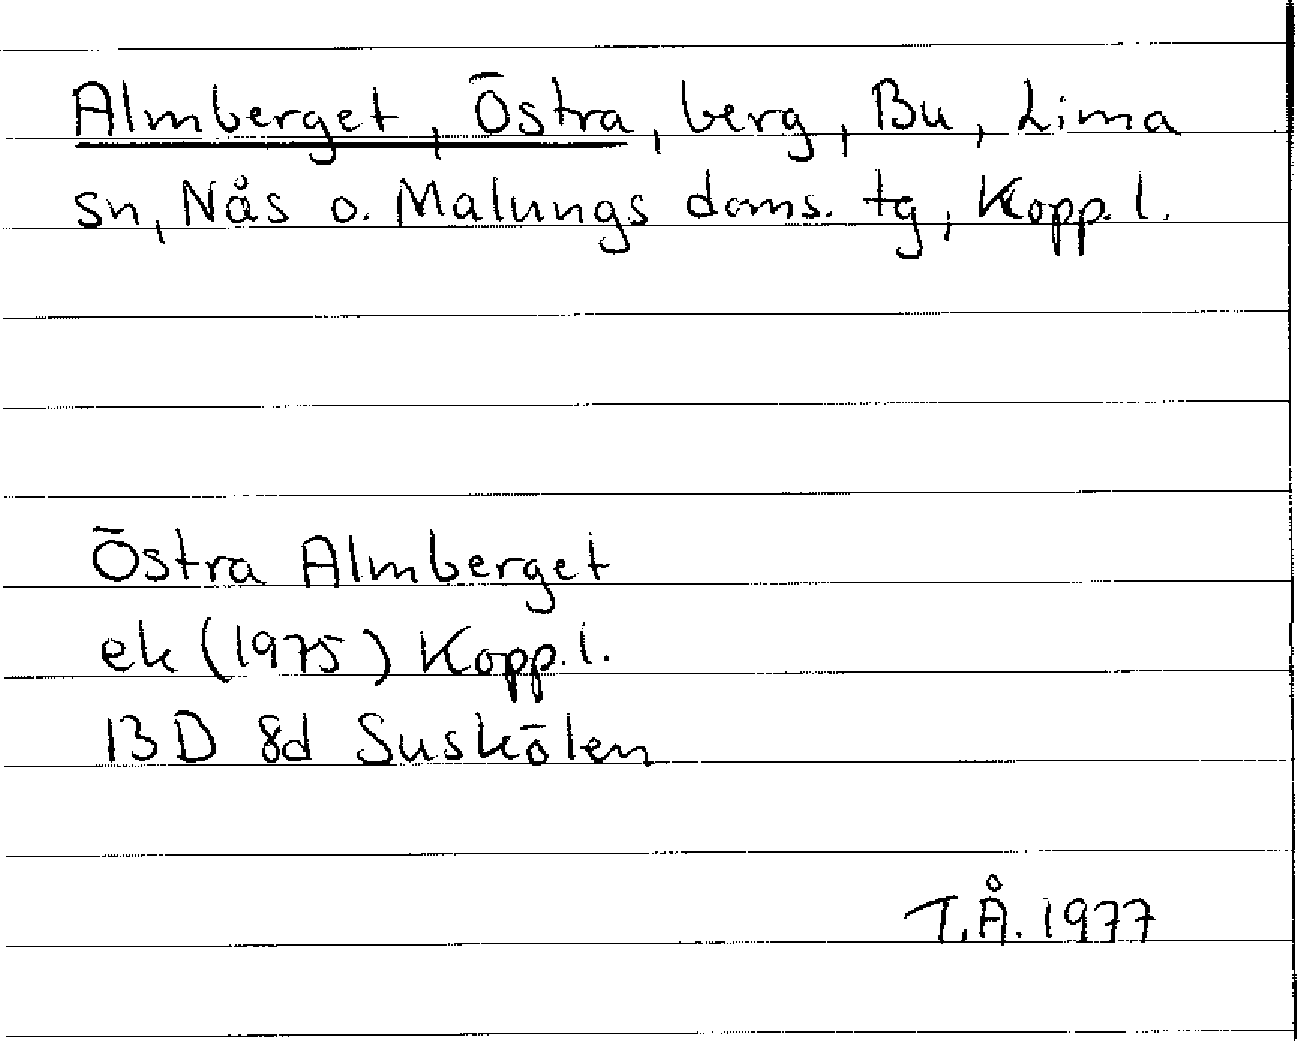 Almberget, Östra, berg, Bu, Lima
sn, Nås o. Malungs doms. tg, Kopp. l.
Östra Almberget
ek (1975) Kopp. l.
13 D 8d Suskölen
T.Å. 1977